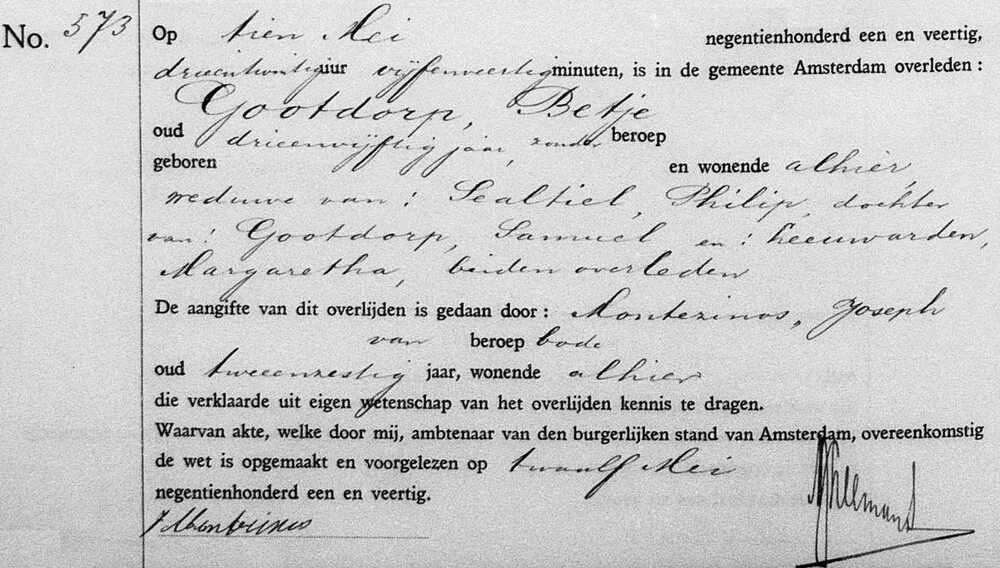 No. 573 Op tien Mei negentienhonderd een en veertig,
drieentwintig uur vijfenveertig minuten, is in de gemeente Amsterdam overleden :
Gootdorp, Betje
oud drieenvijftig jaar, zonder beroep
geboren en wonende alhier,
weduwe van : Sealtiel, Philip, dochter
van : Gootdorp, Samuel en : Leeuwarden,
Margaretha, beiden overleden
De aangifte van dit overlijden is gedaan door : Montezinos, Joseph
van beroep bode
oud tweeenzestig jaar, wonende alhier
die verklaarde uit eigen wetenschap van het overlijden kennis te dragen.
Waarvan akte, welke door mij, ambtenaar van den burgerlijken stand van Amsterdam, overeenkomstig
de wet is opgemaakt en voorgelezen op twaalf Mei
negentienhonderd een en veertig.
J Montezinos